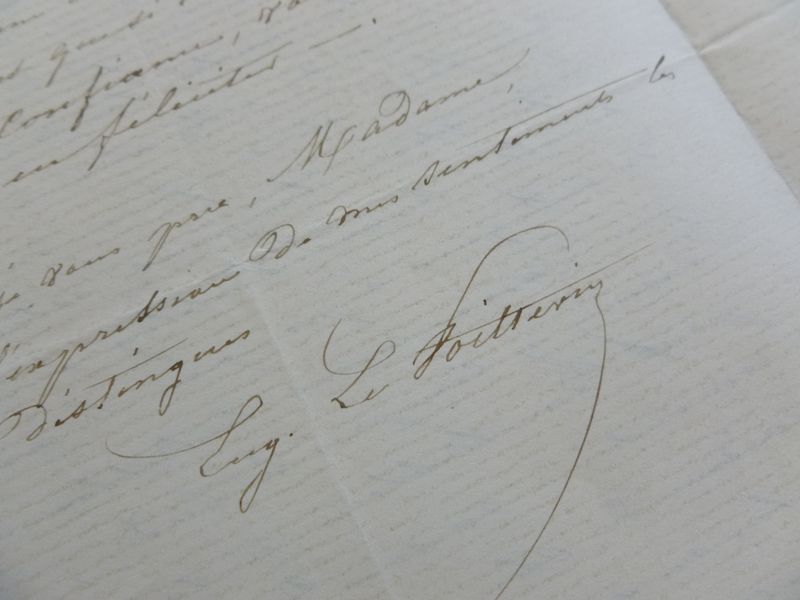 confiance,
en féliciter —.
vous prie, Madame,
l'expression de mes sentiments les
distingués
Eug. Le Poittevin